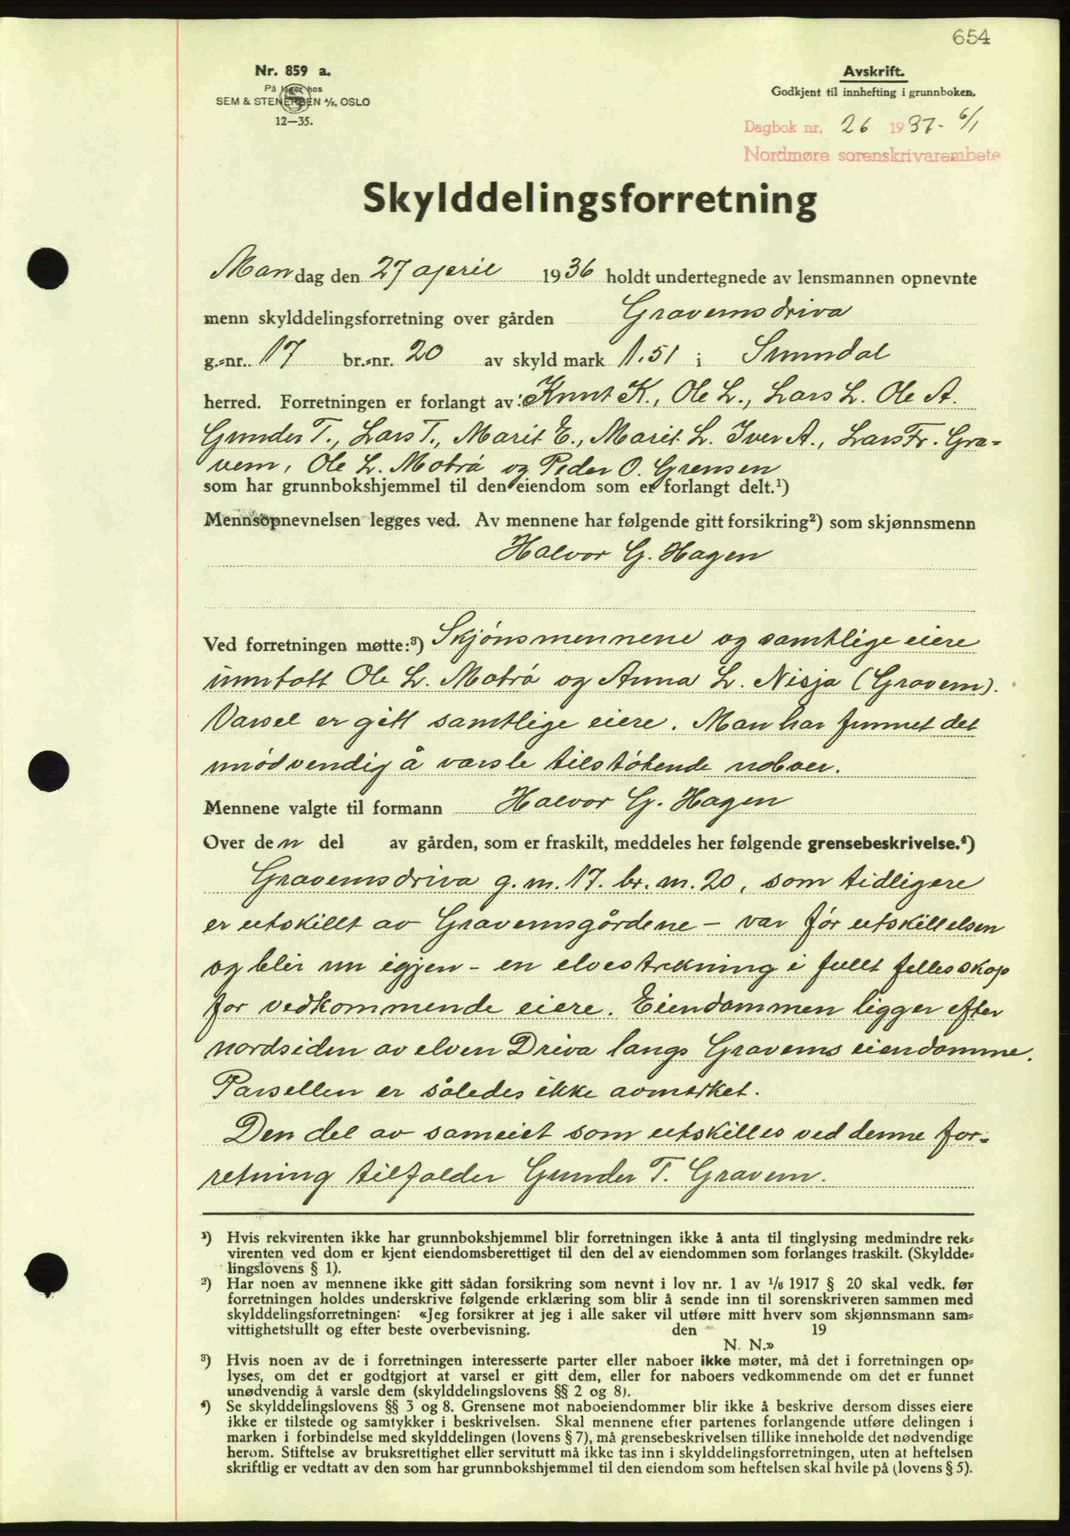 654
Nr. 859 a.
På lager hos
SEM & STENERSEN A/S, OSLO
12—35.
Avskrift.
Godkjent til innhefting i grunnboken.
Dagbok nr. 26 1937- 6/1
Nordmøre sorenskrivarembete
Skylddelingsforretning
Mandag den 27 april 1936 holdt undertegnede av lensmannen opnevnte
menn skylddelingsforretning over gården Gravemsdriva
g.-nr. 17 br.-nr. 20 av skyld mark 1.51 i Sunndal
herred. Forretningen er forlangt av: Knut K., Ole L., Lars L. Ole A.
Gunder T., Lars T., Marit E., Marit L. Iver A., Lars Fr. Gra-
vem, Ole L. Mobrå og Peder O. Grensen
som har grunnbokshjemmel til den eiendom som er forlangt delt.¹)
Mennsopnevnelsen legges ved. Av mennene har følgende gitt forsikring²) som skjønnsmenn
Halvor G. Hagen
Ved forretningen møtte:³) Skjønsmennene og samtlige eiere
unntatt Ole L. Mobrå og Anna L. Nisja (Gravem).
Varsel er gitt samtlige eiere. Man har funnet det
unødvendig å varsle tilstøtende naboer.
Mennene valgte til formann Halvor G. Hagen
Over den del av gården, som er fraskilt, meddeles her følgende grensebeskrivelse.⁴)
Gravemsdriva g.nr. 17. br.nr. 20, som tidligere
er utskillt av Gravemsgårdene - var før utskillelsen
og blir nu igjen - en elvestrekning i fullt fellesskap
for vedkommende eiere. Eiendommen ligger efter
nordsiden av elven Driva langs Gravems eiendomme.
Parsellen er således ikke avmerket.
Den del av sameiet som utskilles ved denne for-
retning tilfalder Gunder T. Gravem.
¹) Hvis rekvirenten ikke har grunnbokshjemmel blir forretningen ikke å anta til tinglysing medmindre rek-
virenten ved dom er kjent eiendomsberettiget til den del av eiendommen som forlanges fraskilt. (Skyldde-
lingslovens § 1).
²) Har noen av mennene ikke gitt sådan forsikring som nevnt i lov nr. 1 av 1/6 1917 § 20 skal vedk. før
forretningen holdes underskrive følgende erklæring som blir å sende inn til sorenskriveren sammen med
skylddelingsforretningen: «Jeg forsikrer at jeg i alle saker vil utføre mitt hverv som skjønnsmann sam-
vittighetsfullt og efter beste overbevisning. den 19
N. N.»
³) Hvis noen av de i forretningen interesserte parter eller naboer ikke møter, må det i forretningen op-
lyses, om det er godtgjort at varsel er gitt dem, eller for naboers vedkommende om det er funnet
unødvendig å varsle dem (skylddelingslovens §§ 2 og 8).
⁴) Se skylddelingslovens §§ 3 og 8. Grensene mot naboeiendommer blir ikke å beskrive dersom disses eiere
ikke er tilstede og samtykker i beskrivelsen. Skal mennene efter partenes forlangende utføre delingen i
marken i forbindelse med skylddelingen (lovens § 7), må grensebeskrivelsen tillike inneholde det nødvendige
herom. Stiftelse av bruksrettighet eller servitutt må ikke tas inn i skylddelingsforretningen, uten at heftelsen
skriftlig er vedtatt av den som har grunnbokshjemmel til den eiendom som heftelsen skal hvile på (lovens § 5).